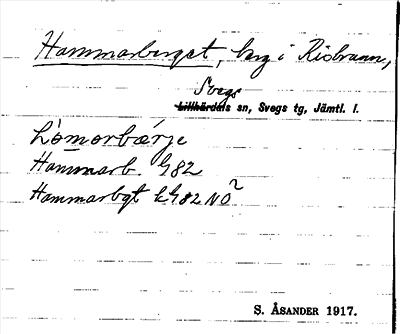 Hammarberget, berg i Risbrunn,
Svegs
Lillhärdals sn, Svegs tg, Jämtl. l.
Hammarb. G82
Hammarbgt LG82 NO²
S. ÅSANDER 1917.